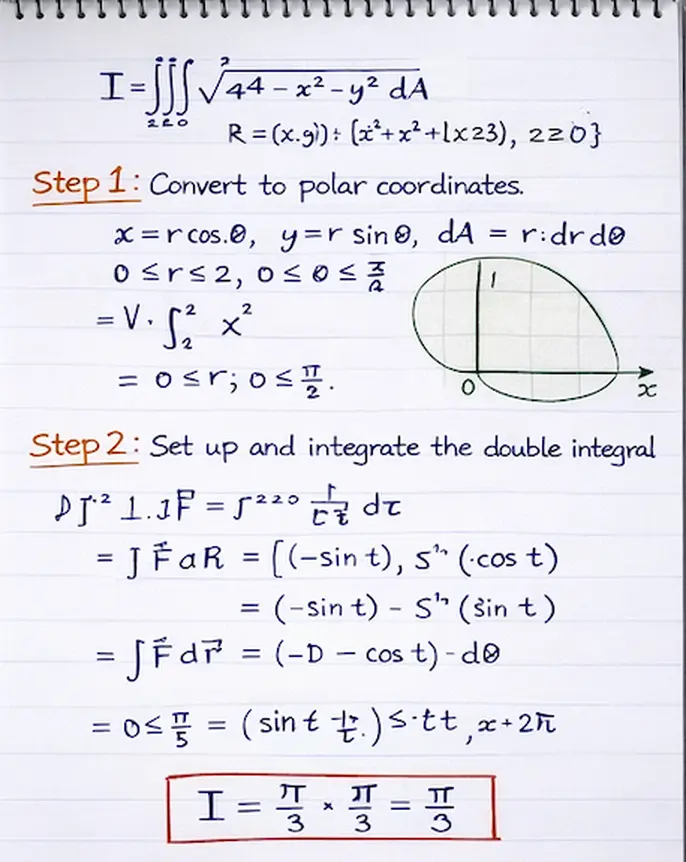 I = ∭ √44 − x² − y² dA
2 2 0
R = (x.g)) ÷ {x²+x²+1x23), 2≥0}
Step 1: Convert to polar coordinates.
x = r cos.θ, y = r sin θ, dA = r:dr dθ
0 ≤ r ≤ 2, 0 ≤ θ ≤
= V · ∫₂² x²
1
= 0 ≤ r; 0 ≤ π/2.
0
x
Step 2: Set up and integrate the double integral
1.1F = ∫²²⁰ dτ
= ∫ F⃗ a R = [(−sin t), S'ⁿ (·cos t)
= (−sin t) − S'ⁿ (sin t)
= ∫ F⃗ dr⃗ = (−D − cos t) - dθ
= 0 ≤ π/5 = (sin t) ≤ ·tt, x + 2π
I = π/3 × π/3 = π/3